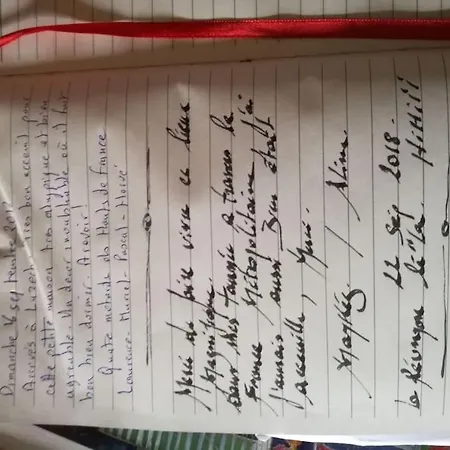 Dimanche 16 septembre
Arrivés à Luzech. Très bon accueil pour
cette petite maison très atypique et bien
agréable. Un décor inoubliable où il fait
bon bien dormir. Arevoir!
Quatre motards des Hauts de France
Laurence - Muriel - Pascal - Hervé
Merci de faire vivre ce lieux
Magnifique
dans mes tournée a travers la
France Métropolitaine j'ai
Jamais aussi Bien était
accueillie, Merci.
22 Sep 2018.
la Réunion HiHiii